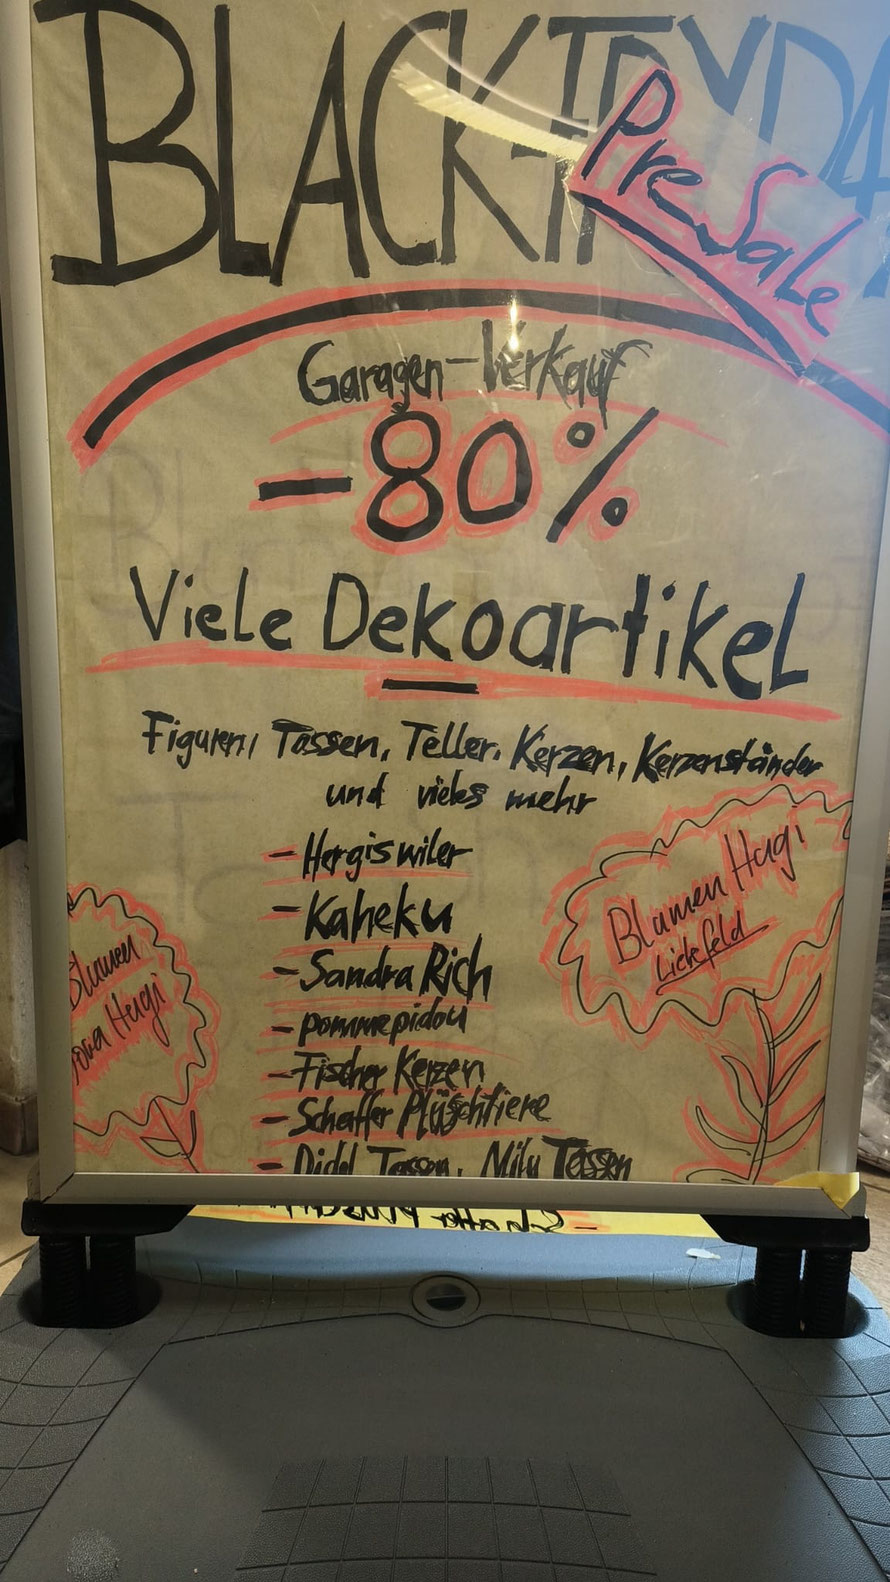 BLACK-FRYDA
Pre Sale
Garagen-Verkauf
-80%
Viele Dekoartikel
Figuren, Tassen, Teller, Kerzen, Kerzenständer
und vieles mehr
- Hergiswiler
- Kaheku
- Sandra Rich
- pommepidou
- Fischer Kerzen
- Schaffer Plüschtiere
- Didel Tassen, Milu Tassen
Blumen Hugi
Blumen
Hugi